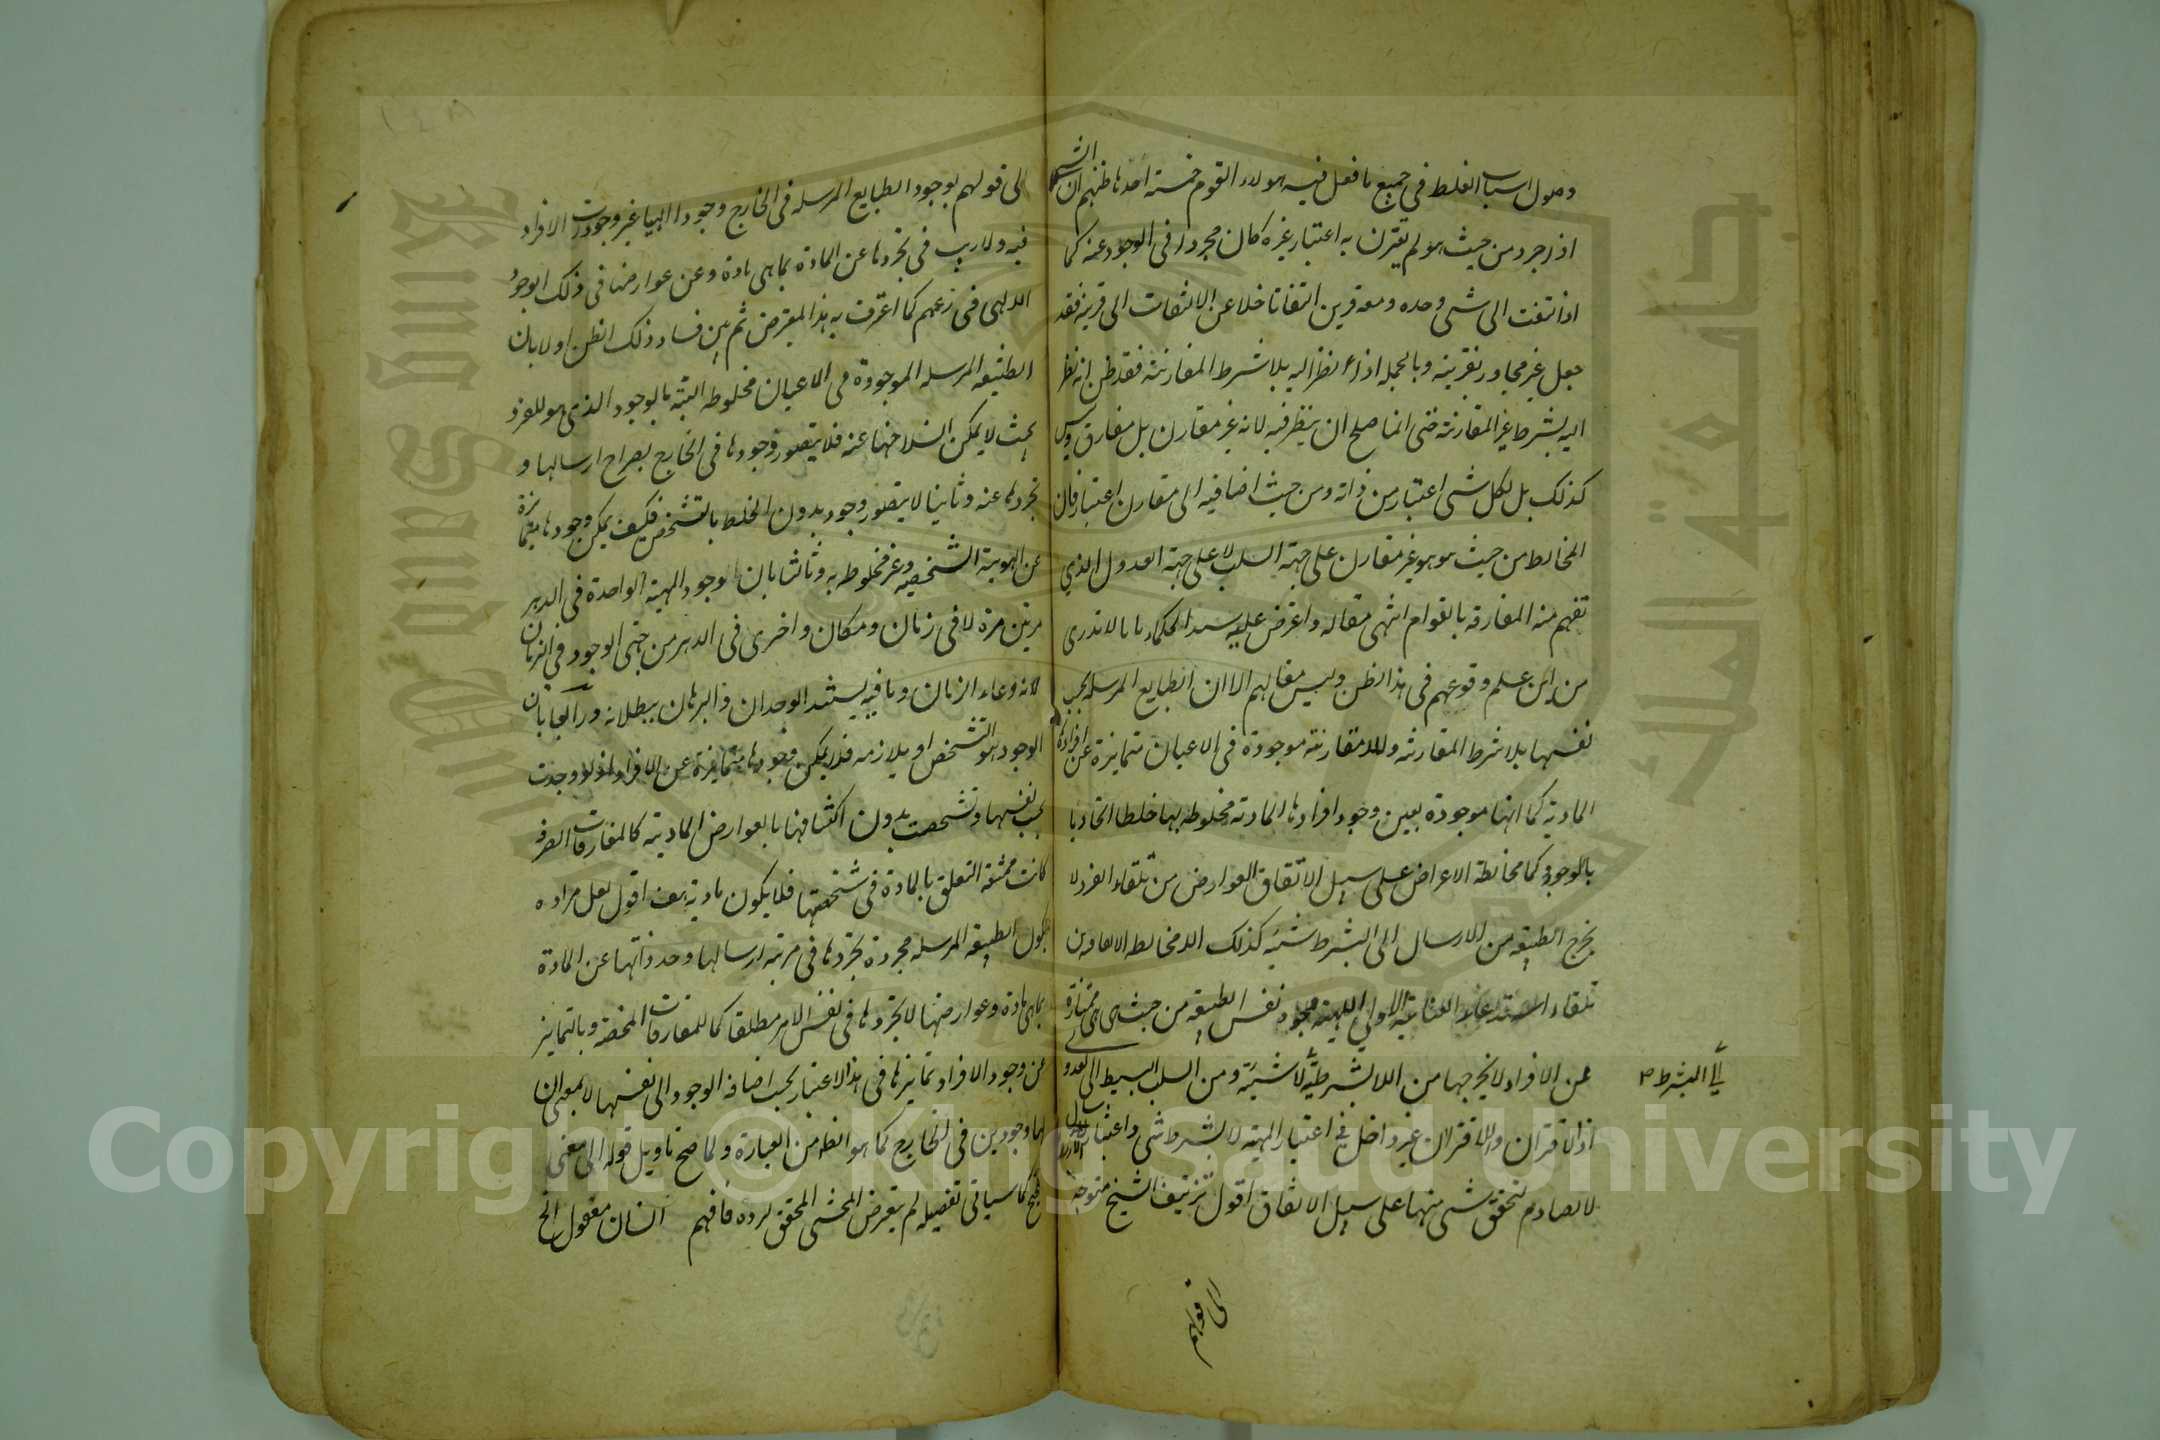 واصول اسباب الغلط في جميع ما فعل فيه هولاء القوم خمسة احدها ظنهم ان الشئ
اذا جرد من حيث هو لم يقترن به اعتبار غيره كان مجردا في الوجود عنه كما
اذا التفت الى شئ وحده ومعه قرين التفاتا خلا عن الالتفات الى قرينه فقد
جعل غير مجاور لقرينه وبالجملة اذا نظر اليه بلا شرط المقارنة فقد ظن انه نظر
اليه بشرط غير المقارنة حتى انما صلح ان ينظر فيه لانه غير مقارن بل مفارق وليس
كذلك بل لكل شئ اعتبار من ذاته ومن حيث اضافته الى مقارن اعتبار فان
المخالط من حيث هو هو غير مقارن على جهة السلب لا على جهة العدول الذي
تفهم منه المفارقة بالقوام انتهى مقاله واعترض عليه سيد الحكماء بانا لا ندري
من اين علم وقوعهم في هذا الظن وليس مقالهم الا ان الطبايع المرسلة بحسب
نفسها بلا شرط المقارنة واللامقارنة موجودة في الاعيان متمايزة عن افرادها
المادية كما انها موجودة بعين وجود افرادها المادية مخلوطة بها خلطا اتحاديا
بالوجود كما مخالطة الاعراض على سبيل الاتفاق العوارض من تلقاء الفرد لا
يخرج الطبيعة من الارسال الى البشرط شيئية كذلك اللامخالطة
تلقاء العناية الاولى الالهية بجود نفس الطبيعة من حيث هي هي متمايزة
عن الافراد لا يخرجها من اللا بشرطية لا شيئية ومن السلب البسيط الى العدول
الى البشرط
اذ الاقتران واللااقتران غير داخل في اعتبار المهية لا بشرط شئ واعتبار
لا تصادم تحقق شئ منها على سبيل الاتفاق اقول تزييف الشيخ متوجه
الى قولهم
الى قولهم بوجود الطبايع المرسلة في الخارج وجودا الهيا غير وجودات الافراد
فيه ولا ريب في تجردها عن المادة بما هي مادة وعن عوارضها في ذلك الوجود
الالهي في زعمهم كما اعترف به هذا المعترض ثم بين فساد ذلك الظن اولا بان
الطبيعة المرسلة الموجودة في الاعيان مخلوطة البتة بالوجود الذي هو للفرد
بحيث لا يمكن انسلاخها عنه فلا يتصور وجودها في الخارج بصراح ارسالها و
تجردها عنه وثانيا لا يتصور وجود بدون الخلط بالتشخص فكيف يمكن وجودها متمايزة
عن الهوية الشخصية وغير مخلوط به وثالثا بان لا وجود للمهية الواحدة في الدهر
مرتين مرة لا في زمان ومكان واخرى في الدهر من جهتي الوجود في الزمان
لانه وعاء الزمان وما فيه يشهد الوجدان والبرهان ببطلانه ورابعا بان
الوجود هو التشخص او يلازمه فلا يمكن وجودها متمايزة عن الافراد اذ لو وجدت
بحسب نفسها وتشخصت بدون اكتنافها بالعوارض المادية كالمفارقات الصرفة
كانت ممتنعة التعلق بالمادة في شخصيتها فلا يكون مادية هف اقول لعل مراده
بكون الطبيعة المرسلة مجردة تجردها في مرتبة ارسالها وحد ذاتها عن المادة
بما هي مادة وعوارضها لا تجردها في نفس الامر مطلقا كما للمفارقات المحضة وبالتمايز
عن وجود الافراد تمايزها في هذا الاعتبار بحسب اضافة الوجود الى نفسها لا بمعنى ان
لها وجودين في الخارج كما هو الظاهر من العبارة ولما صح تاويل قوله الى معنى
صحيح كما سياتي تفصيله لم يتعرض المحشي المحقق لرده فافهم انسان معقول الخ
Copyright © King Saud University
King Saud University
جامعة الملك سعود